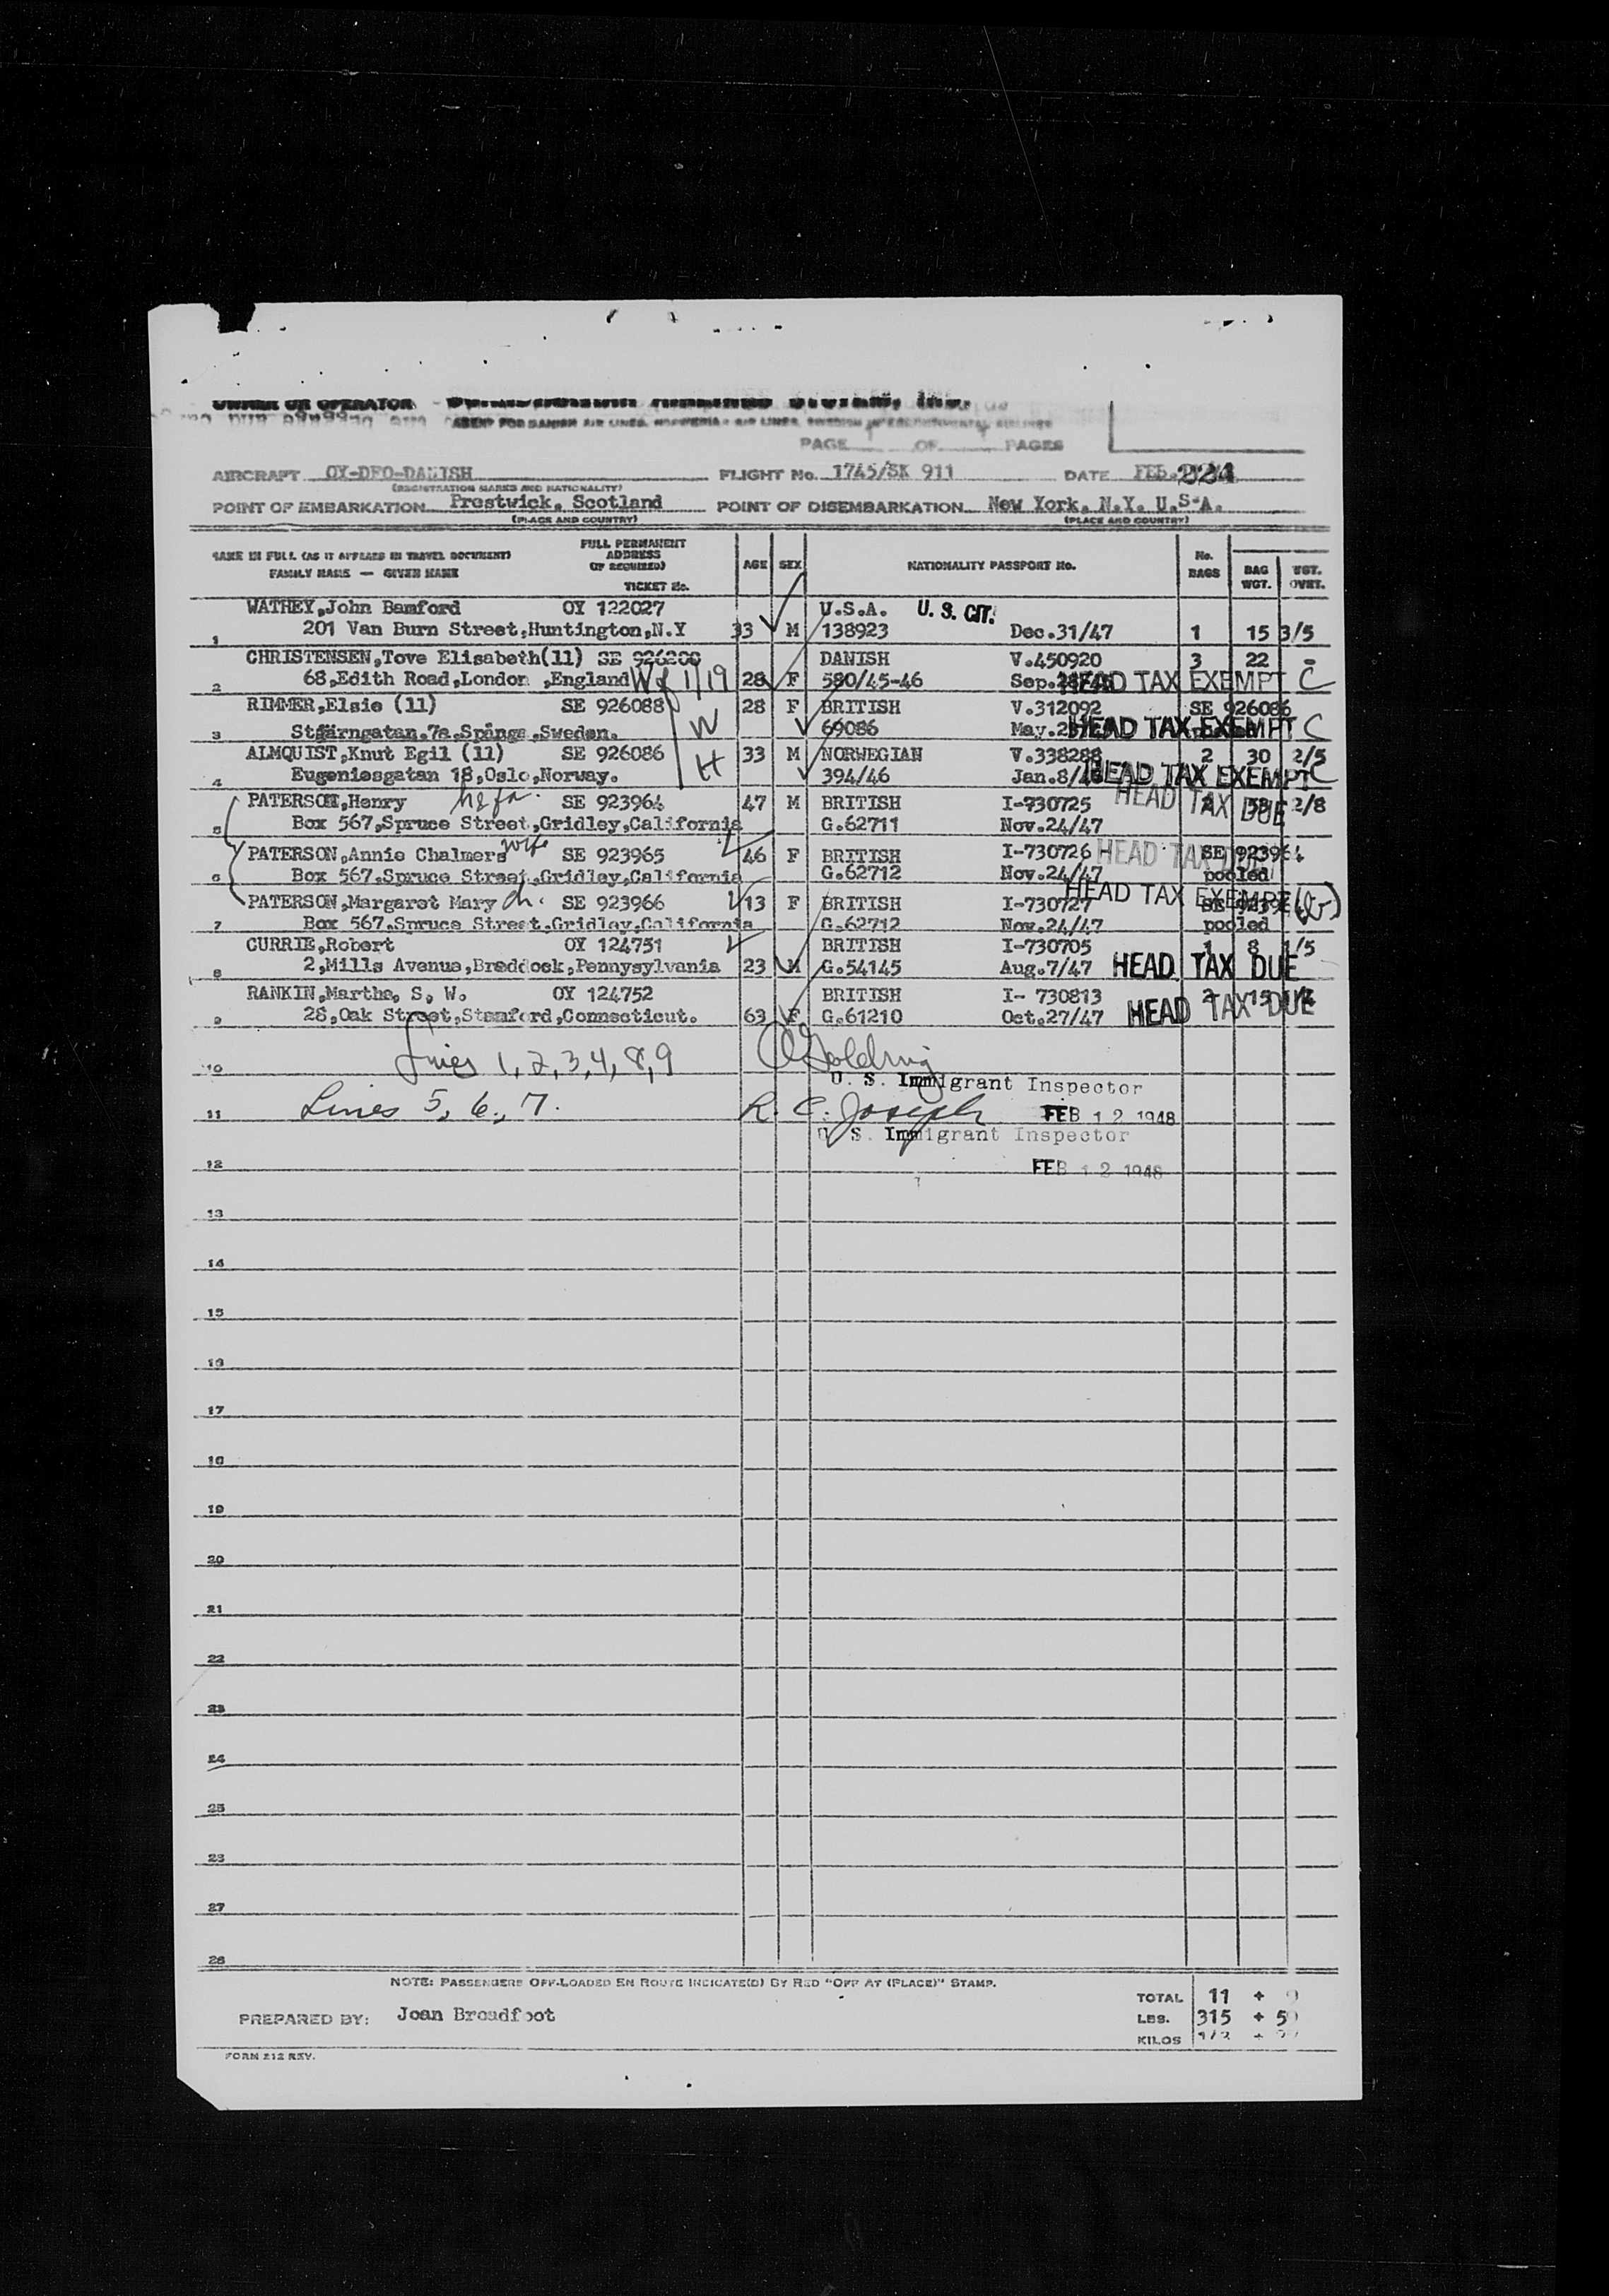 OWNER OR OPERATOR
AGENT FOR DANISH AIR LINES, NORWEGIAN AIR LINES, SWEDISH INTERCONTINENTAL AIRLINES
PAGE OF PAGES
AIRCRAFT OY-DFO-DANISH FLIGHT No. 1745/SK 911 DATE FEB.
(REGISTRATION MARKS AND NATIONALITY)
POINT OF EMBARKATION Prestwick, Scotland POINT OF DISEMBARKATION New York, N.Y. U.S.A.
(PLACE AND COUNTRY) (PLACE AND COUNTRY)
NAME IN FULL (AS IT APPEARS IN TRAVEL DOCUMENT) FULL PERMANENT ADDRESS (IF REQUIRED) AGE SEX NATIONALITY PASSPORT No. No. BAGS BAG WGT. WGT. OVRT.
FAMILY NAME — GIVEN NAME TICKET No.
WATHEY,John Bamford OY 122027 U.S.A. U. S. CIT.
1 201 Van Burn Street,Huntington,N.Y 33 M 138923 Dec.31/47 1 15 3/5
CHRISTENSEN,Tove Elisabeth(11) SE 926200 DANISH V.450920 3 22 -
2 68,Edith Road,London ,England 28 F 580/45-46 Sep. HEAD TAX EXEMPT C
RIMMER,Elsie (11) SE 926088 W 28 F BRITISH V.312092 SE 926086
3 Stjärngatan.7a,Spånga,Sweden. 69086 May. HEAD TAX EXEMPT C
ALMQUIST,Knut Egil (11) SE 926086 H 33 M NORWEGIAN V.338288 2 30 2/5
4 Eugeniesgatan 18,Oslo,Norway. 394/46 Jan.8/ HEAD TAX EXEMPT C
PATERSON,Henry SE 923964 47 M BRITISH I-730725 HEAD TAX DUE 2 58 2/8
5 Box 567,Spruce Street,Gridley,California G.62711 Nov.24/47
PATERSON,Annie Chalmers wife SE 923965 46 F BRITISH I-730726 HEAD TAX DUE SE 923964
6 Box 567,Spruce Street,Gridley,California G.62712 Nov.24/47 pooled
PATERSON,Margaret Mary ch. SE 923966 13 F BRITISH I-730727 HEAD TAX EXEMPT SE 923964
7 Box 567,Spruce Street,Gridley,California G.62712 Nov.24/47 pooled
CURRIE,Robert OY 124751 BRITISH I-730705 1 8 1/5
8 2,Mills Avenue,Braddock,Pennysylvania 23 M G.54145 Aug.7/47 HEAD TAX DUE
RANKIN,Martha, S, W. OY 124752 BRITISH I- 730813 2 15
9 28,Oak Street,Stamford,Connecticut. 63 F G.61210 Oct.27/47 HEAD TAX DUE
10 Lines 1, 2, 3, 4, 8, 9 Golding
U. S. Immigrant Inspector
11 Lines 5, 6, 7. R. C. Joseph FEB 12 1948
U. S. Immigrant Inspector
12 FEB 12 1948
13
14
15
16
17
18
19
20
21
22
23
24
25
26
27
28
NOTE: PASSENGERS OFF-LOADED EN ROUTE INDICATE(D) BY RED "OFF AT (PLACE)" STAMP.
TOTAL 11 +
PREPARED BY: Joan Broadfoot LBS. 315 +
KILOS
FORM 212 REV.